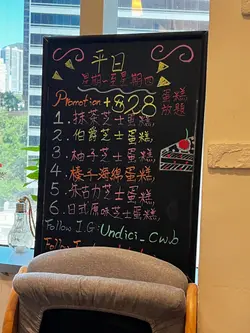 平日
星期一至星期四
Promotion + $28 蛋糕
1. 抹茶芝士蛋糕,
2. 伯爵芝士蛋糕,
3. 柚子芝士蛋糕,
4. 榛子海綿蛋糕,
5. 朱古力芝士蛋糕,
6. 日式原味芝士蛋糕,
Follow I.G: Undici_cwb
Follow